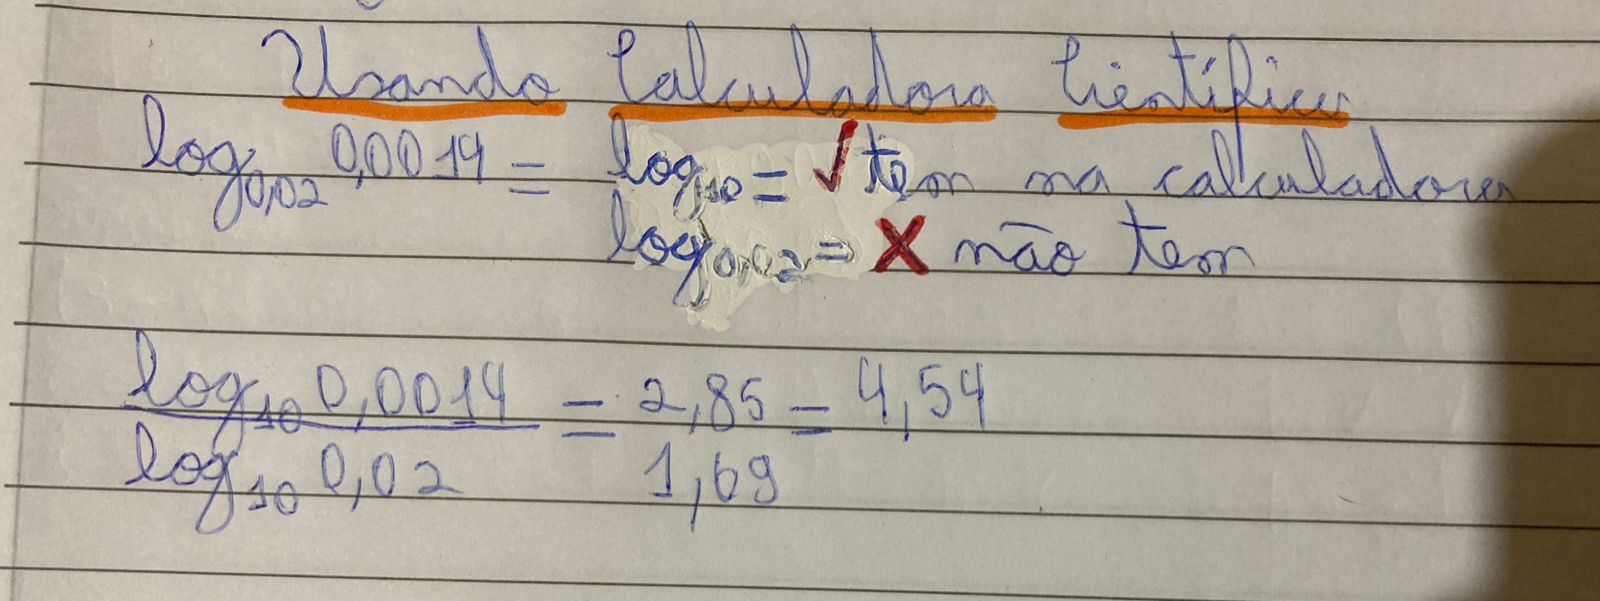 Usando Calculadora Científica
log₀,₀₂ 0,0014 = log₁₀ = ✓ tem na calculadora
log₀,₀₂ = X não tem
log₁₀ 0,0014 = 2,85 = 4,54
log₁₀ 0,02 1,69